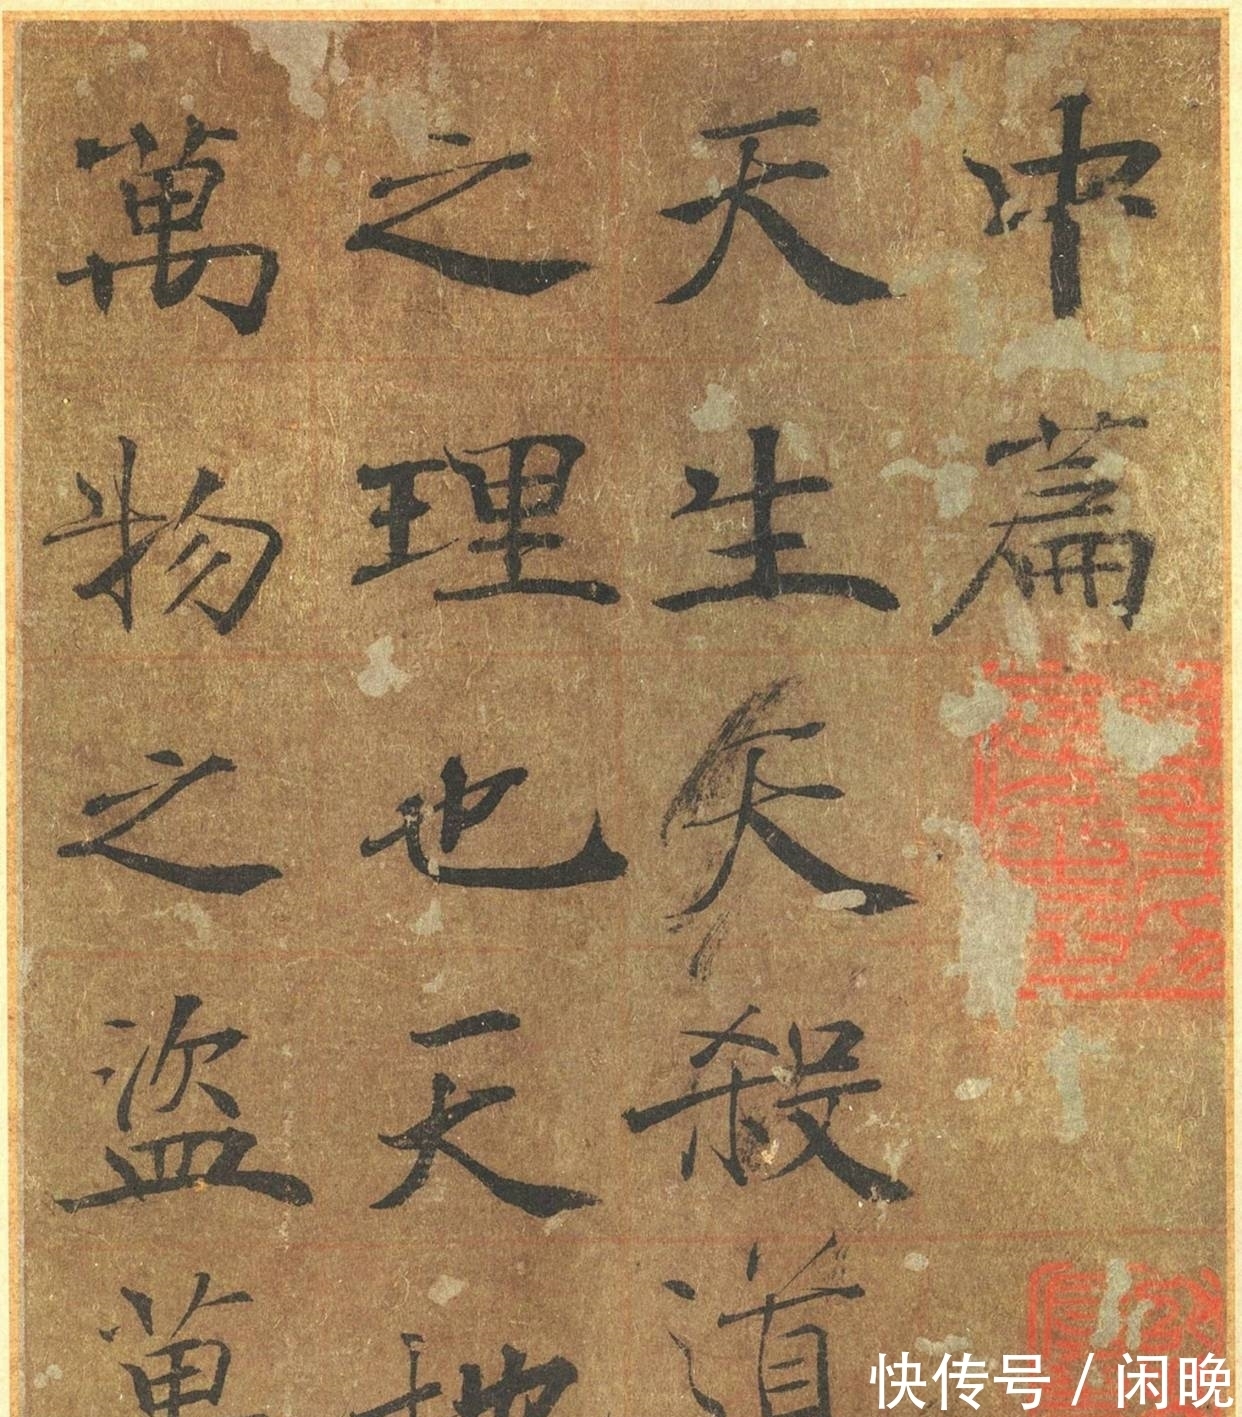 中篇
天生天殺道
之理也天地
萬物之盜萬
快传号 / 闲晚